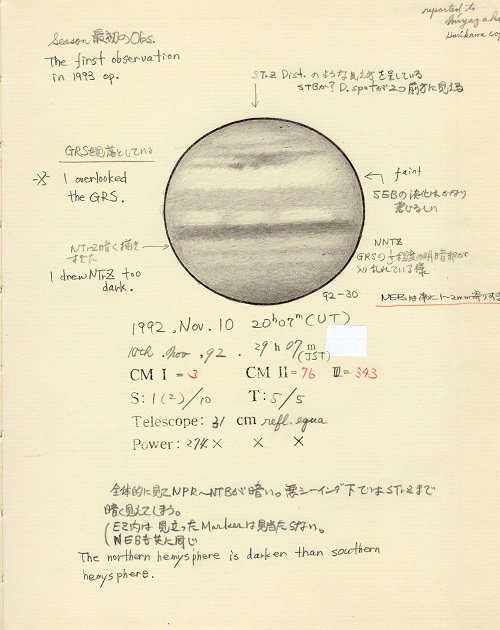 reported to
Miyazaki
Season 最初のObs.
The first observation
in 1993 op.
STrZ Dist. のような見え方を呈している
STBか? D. spotが2つ前方に見える
GRSを見落としている
I overlooked
the GRS.
faint
SEBの淡化はかなり
著じるしい
NTrZ 暗く描き
すぎた
I drew NTrZ too
dark.
NNTZ
GRSの 程度の明暗部が
入り乱れている様
92-30
NEBは
1992. Nov. 10 20h07m (UT)
10th. Nov, 92. 29h 07m
(JST)
CM I = 3 CM II = 76 III = 343
S: 1(2)/10 T: 5/5
Telescope: 31 cm refl. equa
Power: 274× × ×
全体的に見てNPR〜NTBが暗い。悪シーイング下ではSTrZまで
暗く見えてしまう。
(EZ内は見立ったMarkerは見当たらない。
NEBも共に同じ
The northern hemysphere is darken than southern
hemysphere.